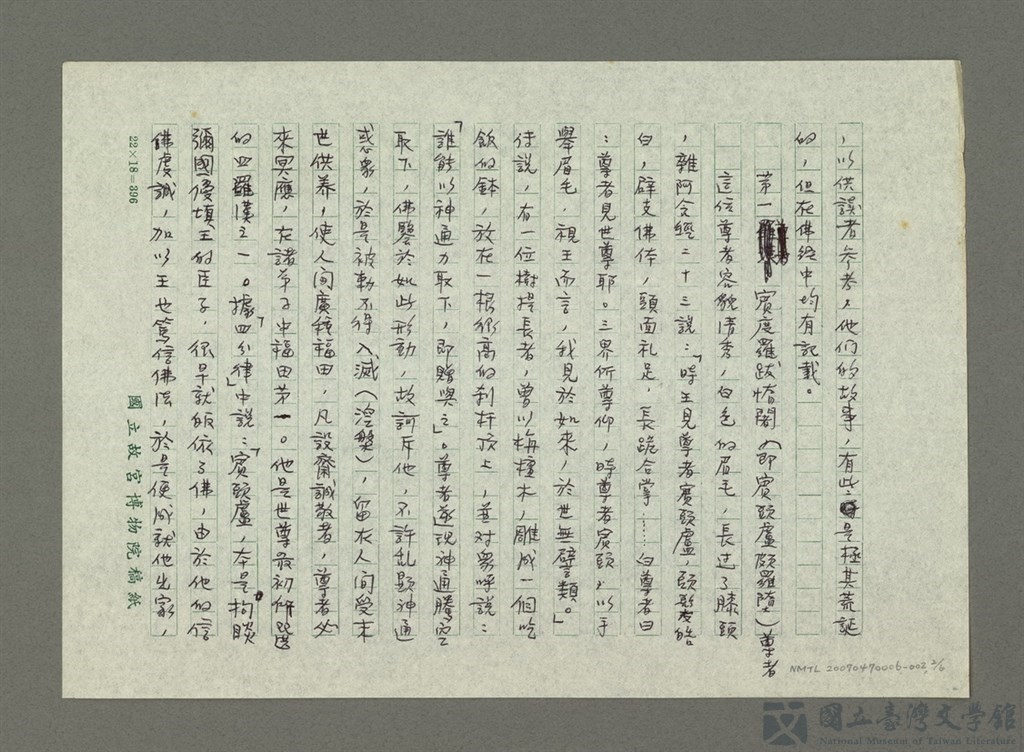 ，以供讀者參考，他們的故事，有些是極其荒誕
的，但在佛經中均有記載。
第一 賓度羅跋惰闍（即賓頭盧頗羅墮）尊者
這位尊者容貌清秀，白色的眉毛，長過了膝頭
，雜阿含經二十三說：「時王見尊者賓頭盧，頭髮皓
白，辟支佛体，頭面礼足，長跪合掌……白尊者曰
：尊者見世尊耶。三界所尊仰，時尊者賓頭 以手
舉眉毛，視王而言，我見於如來，於世無譬類。」
傳說，有一位樹提長者，曾以栴檀木，雕成一個吃
飯的鉢，放在一根很高的刹杆頂上，並对眾呼說：
「誰能以神通力取下，即贈與之」。尊者遂現神通騰空
取下，佛鑒於如此形動，故訶斥他，不許乱顯神通
惑眾，於是被勅不得入滅（涅槃），留在人間受末
世供养，使人间廣種福田，凡設齋誠敬者，尊者必
來冥應，在諸弟子中福田第一。他是世尊最初
的四羅漢之一。據「四分律」中說：「賓頭盧，本是拘睒
彌國優填王的臣子，很早就皈依了佛，由於他的信
佛虔誠，加以王也篤信佛法，於是便成就他出家，
22×18=396
國立故宮博物院稿紙
NMTL 20070470006-002 2/6
國立臺灣文學館
National Museum of Taiwan Literature